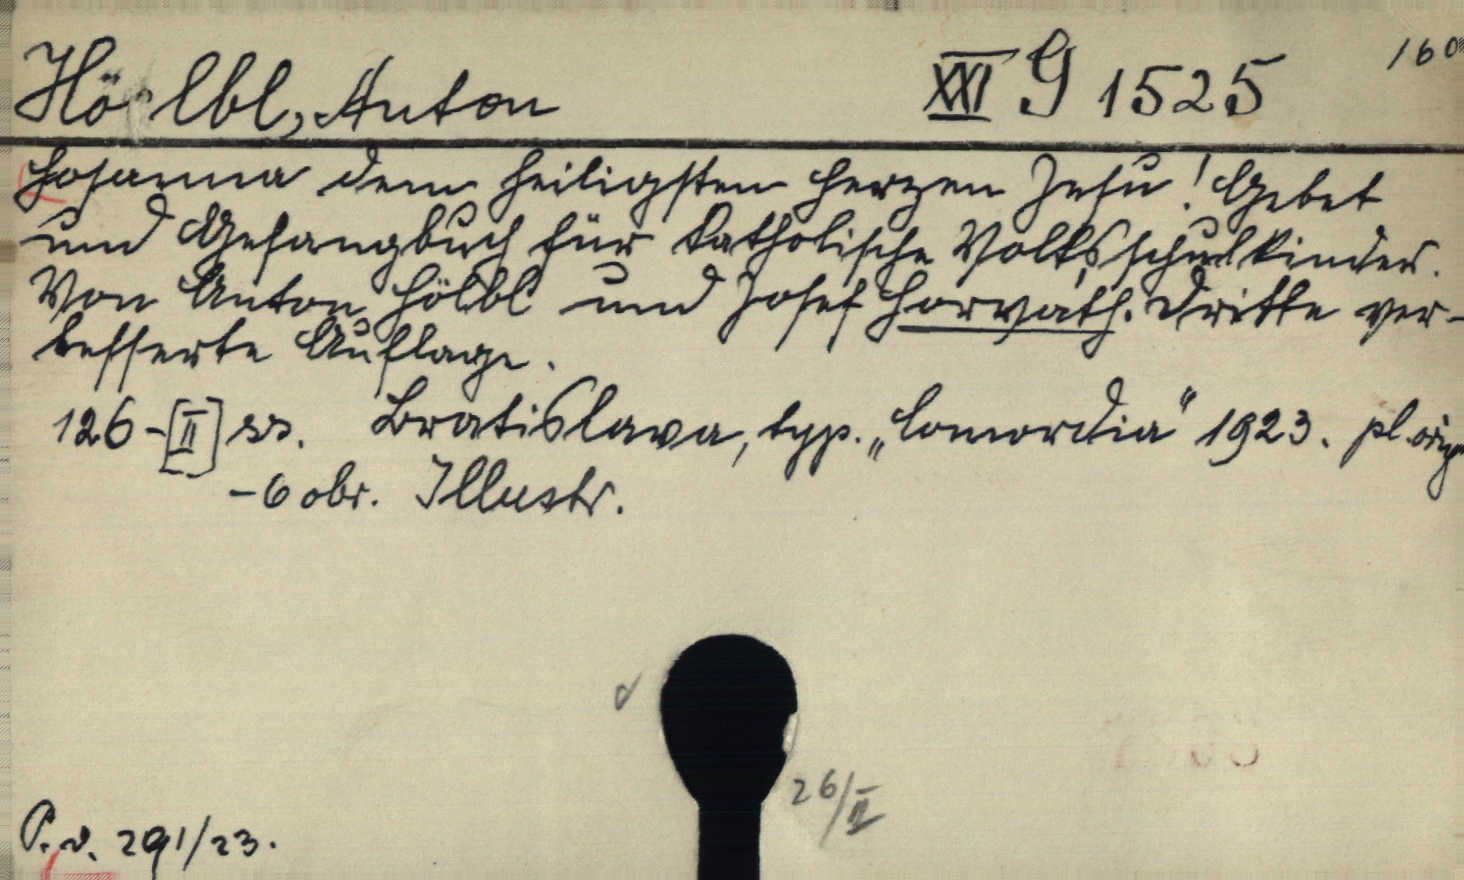 Hölbl, Anton XXI G 1525 160
Hosanna dem heiligsten Herzen Jesu! Gebet
und Gesangbuch für katholische Volksschulkinder.
Von Anton Hölbl und Josef Horváth. Dritte ver-
besserte Auflage.
126-[II] ss. Bratislava, typ. „Concordia" 1923. pl. orig
-6 obr. Illustr.
26/II
P. v. 291/23.